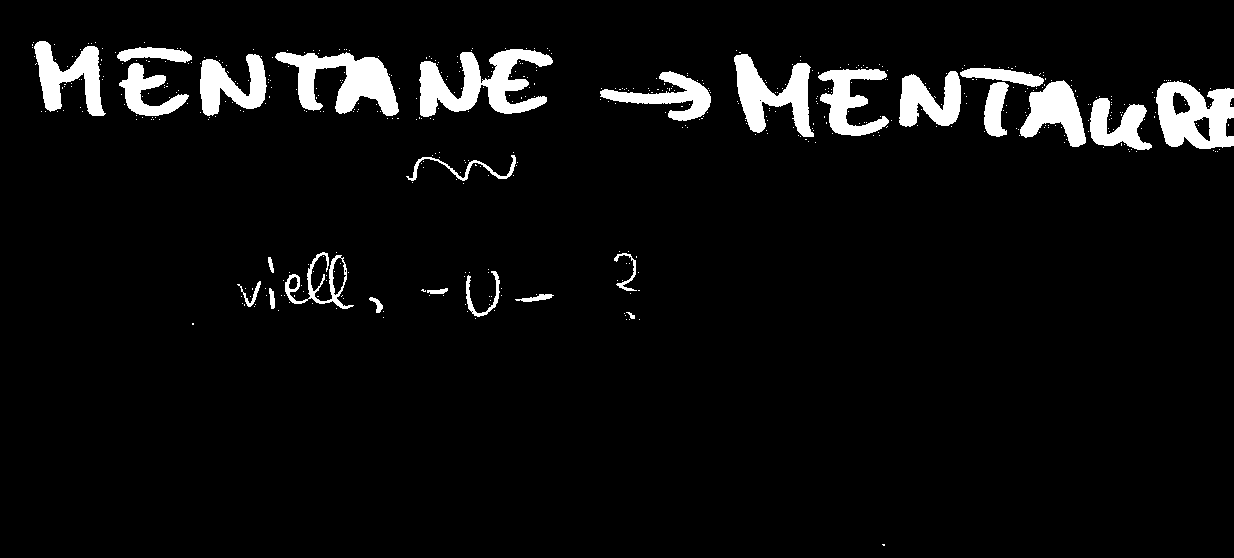 MENTANE → MENTAURE
viell, -U- ?